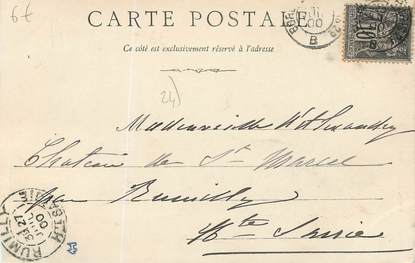 6€
CARTE POSTALE
Ce côté est exclusivement réservé à l'adresse
B
24
Mademoiselle
Chateau de St Marcel
par Rumilly
Hte Savoie
RUMILLY
27
00